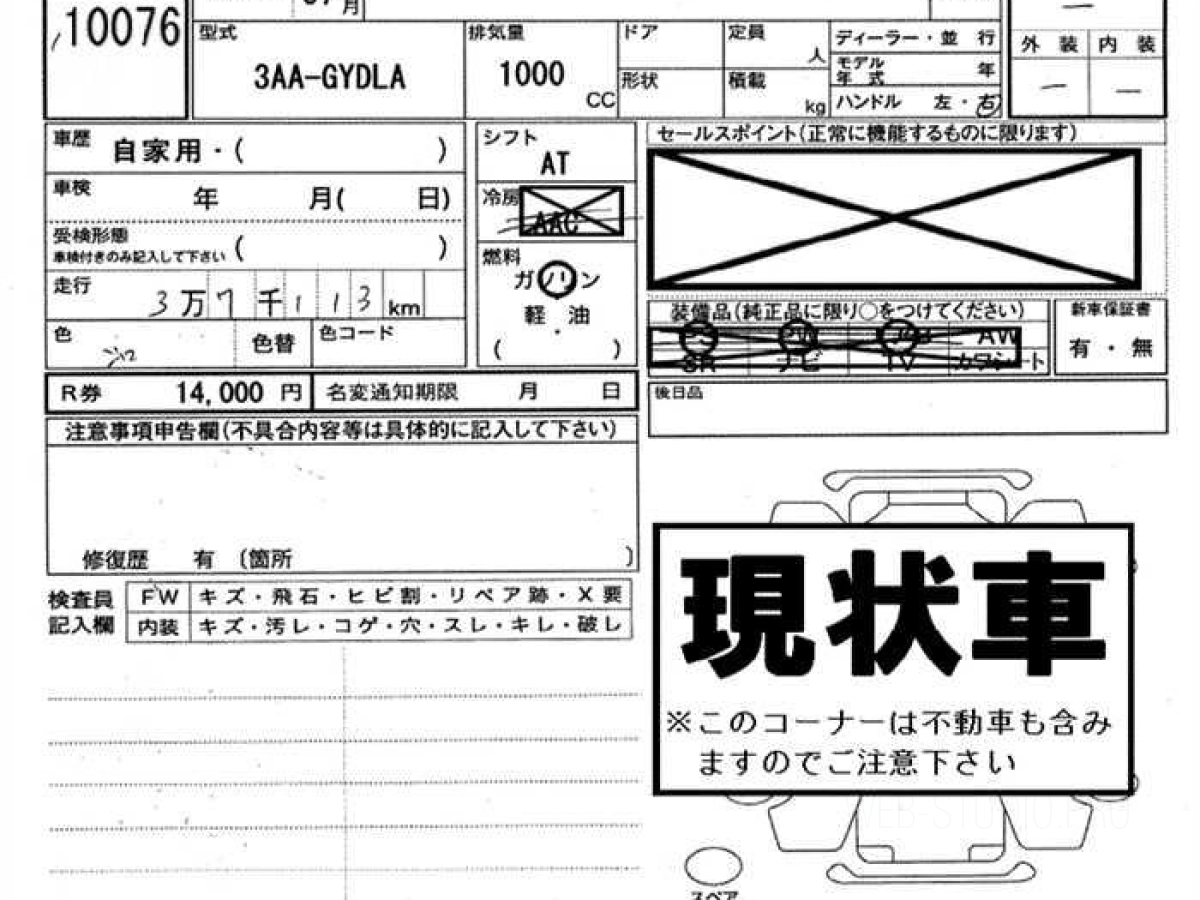 月
10076
型式
3AA-GYDLA
排気量
1000
CC
ドア
形状
定員
人
積載
kg
ディーラー・並 行
モデル
年 式
年
ハンドル 左・右
外 装
内 装
車歴
自家用・( )
車検
年 月( 日)
受検形態
車検付きのみ記入して下さい ( )
走行
3万7千113km
色
シロ
色替
色コード
シフト
AT
冷房
AAC
燃料
ガソリン
軽 ・ 油
( )
セールスポイント(正常に機能するものに限ります)
装備品(純正品に限り○をつけてください)
PS PW AW
SR ナビ TV カワシート
新車保証書
有 ・ 無
後日品
R券 14,000 円
名変通知期限 月 日
注意事項申告欄(不具合内容等は具体的に記入して下さい)
修復歴 有 〔箇所 〕
検査員
記入欄
FW キズ・飛石・ヒビ割・リペア跡・X要
内装 キズ・汚レ・コゲ・穴・スレ・キレ・破レ
現状車
※このコーナーは不動車も含み
ますのでご注意下さい
スペア